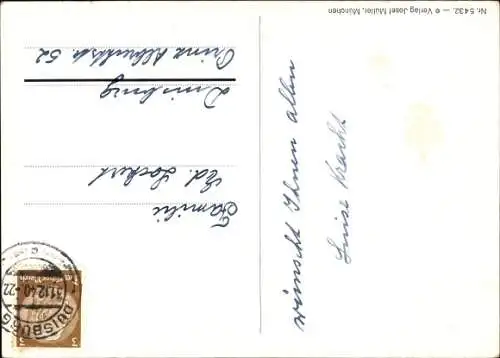 wünscht Ihnen allen
Luise Kracht
Familie
Ed. Lockert
Duisburg
Prinz Albrechtstr. 52
Nr. 5432. — © Verlag Josef Müller, München
DUISBURG
31.12.40.-22
Deutsches Reich
3 3